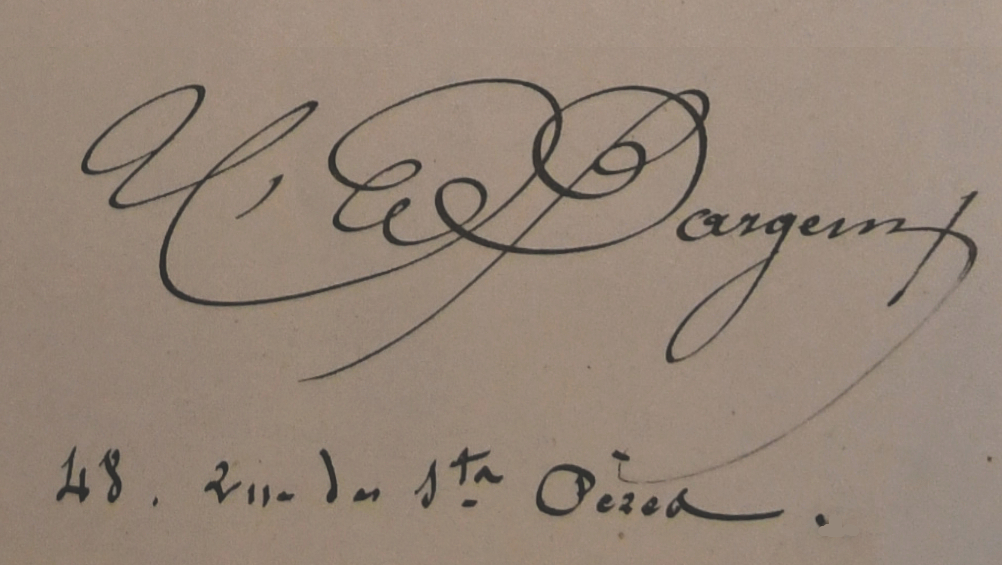 Y' Ed Dargent
48. rue des Sts Pères.